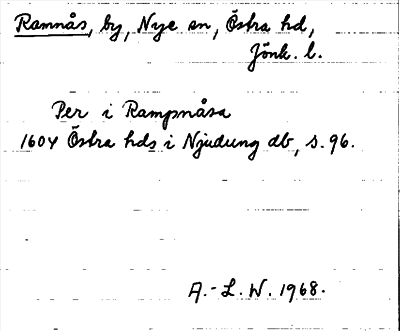 Ramnås, by, Nye sn, Östra hd,
Jönk. l.
Per i Rampnåsa
1604 Östra hds i Njudung db, s. 96.
A.-L. W. 1968.